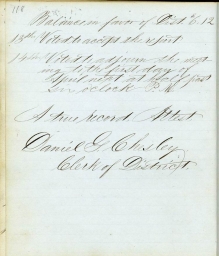 118
Balance in favor of Dist. 6.12
13th Voted to accept the report
14th Voted to adjourn the
to the first day of
April next at half past
six o'clock P.M.
A true record Attest
Daniel G Chesley
Clerk of District